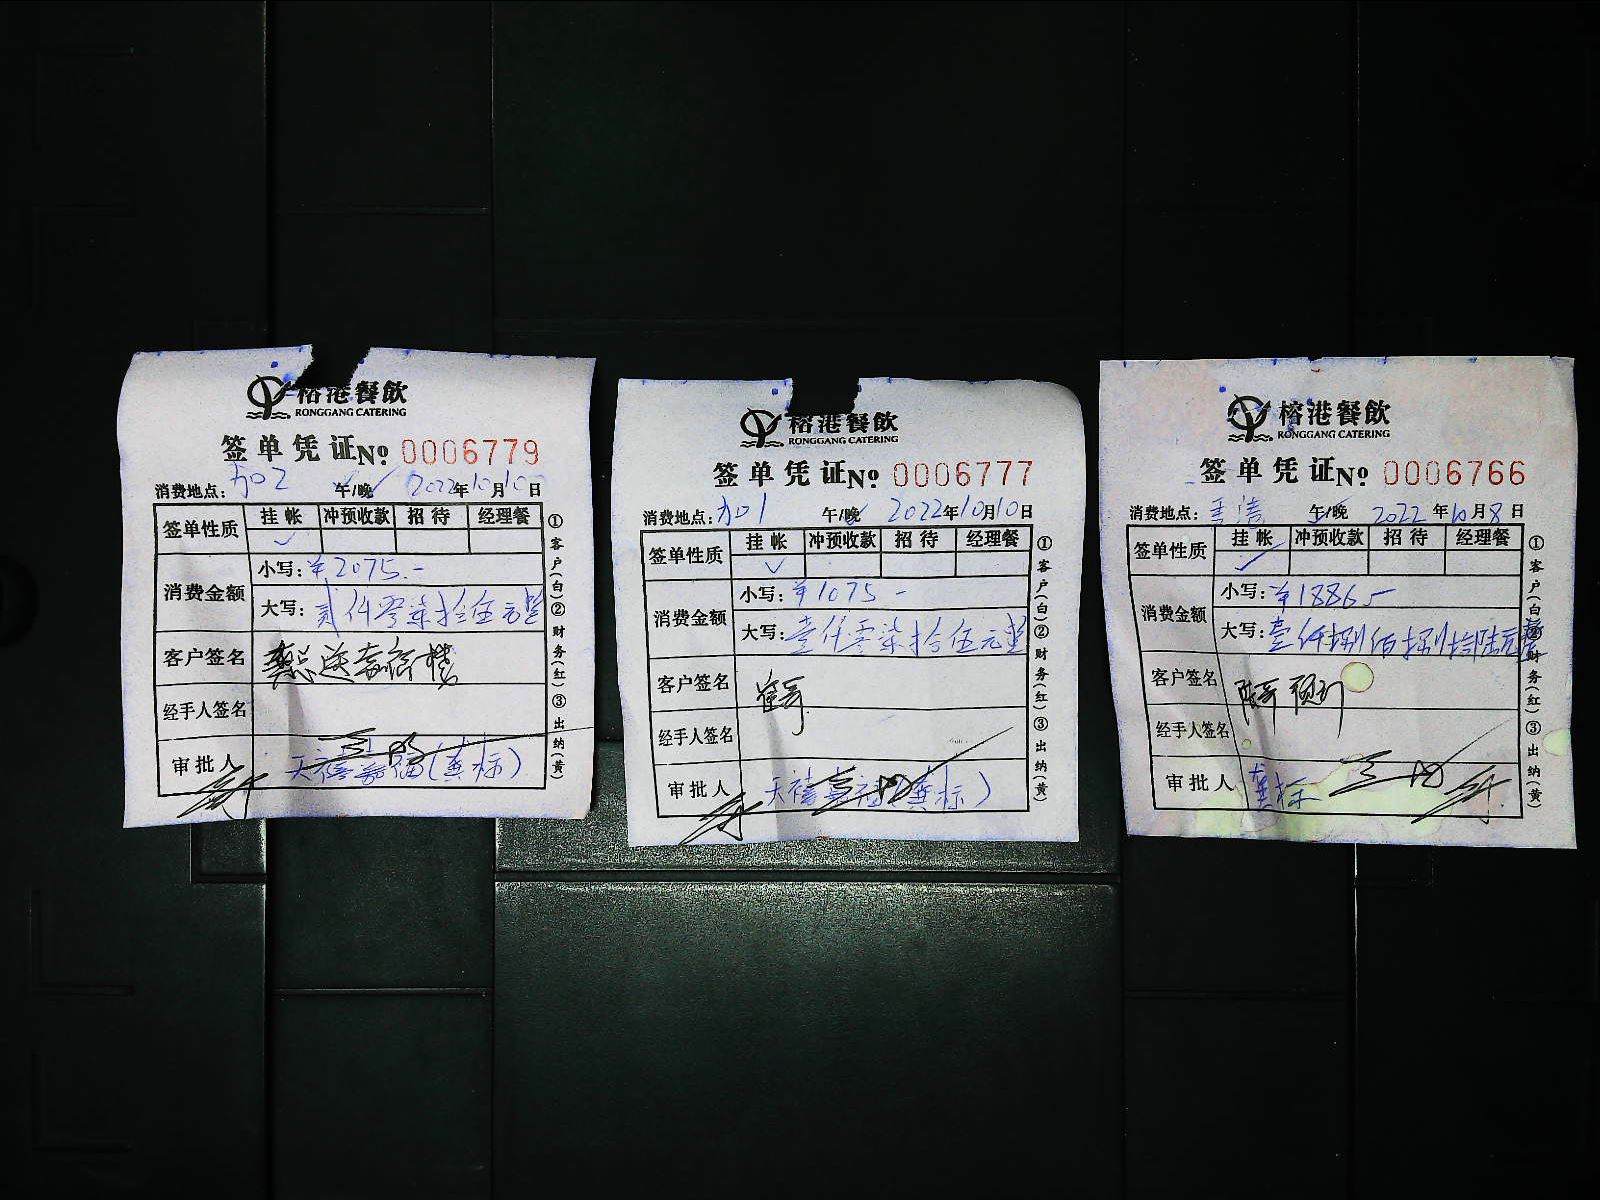 榕港餐飲
RONGGANG CATERING
签单凭证 No 0006779
消费地点：加02 午/晚 2022年10月10日
签单性质 挂帐 冲预收款 招待 经理餐
✓
消费金额
小写：¥2075.-
大写：贰仟零柒拾伍元整
客户签名
经手人签名
审批人 天禧嘉福(龚标)
①客户(白)②财务(红)③出纳(黄)
榕港餐飲
RONGGANG CATERING
签单凭证 No 0006777
消费地点：加01 午/晚 2022年10月10日
签单性质 挂帐 冲预收款 招待 经理餐
✓
消费金额
小写：¥1075-
大写：壹仟零柒拾伍元整
客户签名
经手人签名
审批人 天禧嘉福(龚标)
①客户(白)②财务(红)③出纳(黄)
榕港餐飲
RONGGANG CATERING
签单凭证 No 0006766
消费地点： 午/晚 2022年10月8日
签单性质 挂帐 冲预收款 招待 经理餐
✓
消费金额
小写：¥1886.-
大写：壹仟捌佰捌拾陆元整
客户签名
经手人签名
审批人 龚标
①客户(白)②财务(红)③出纳(黄)